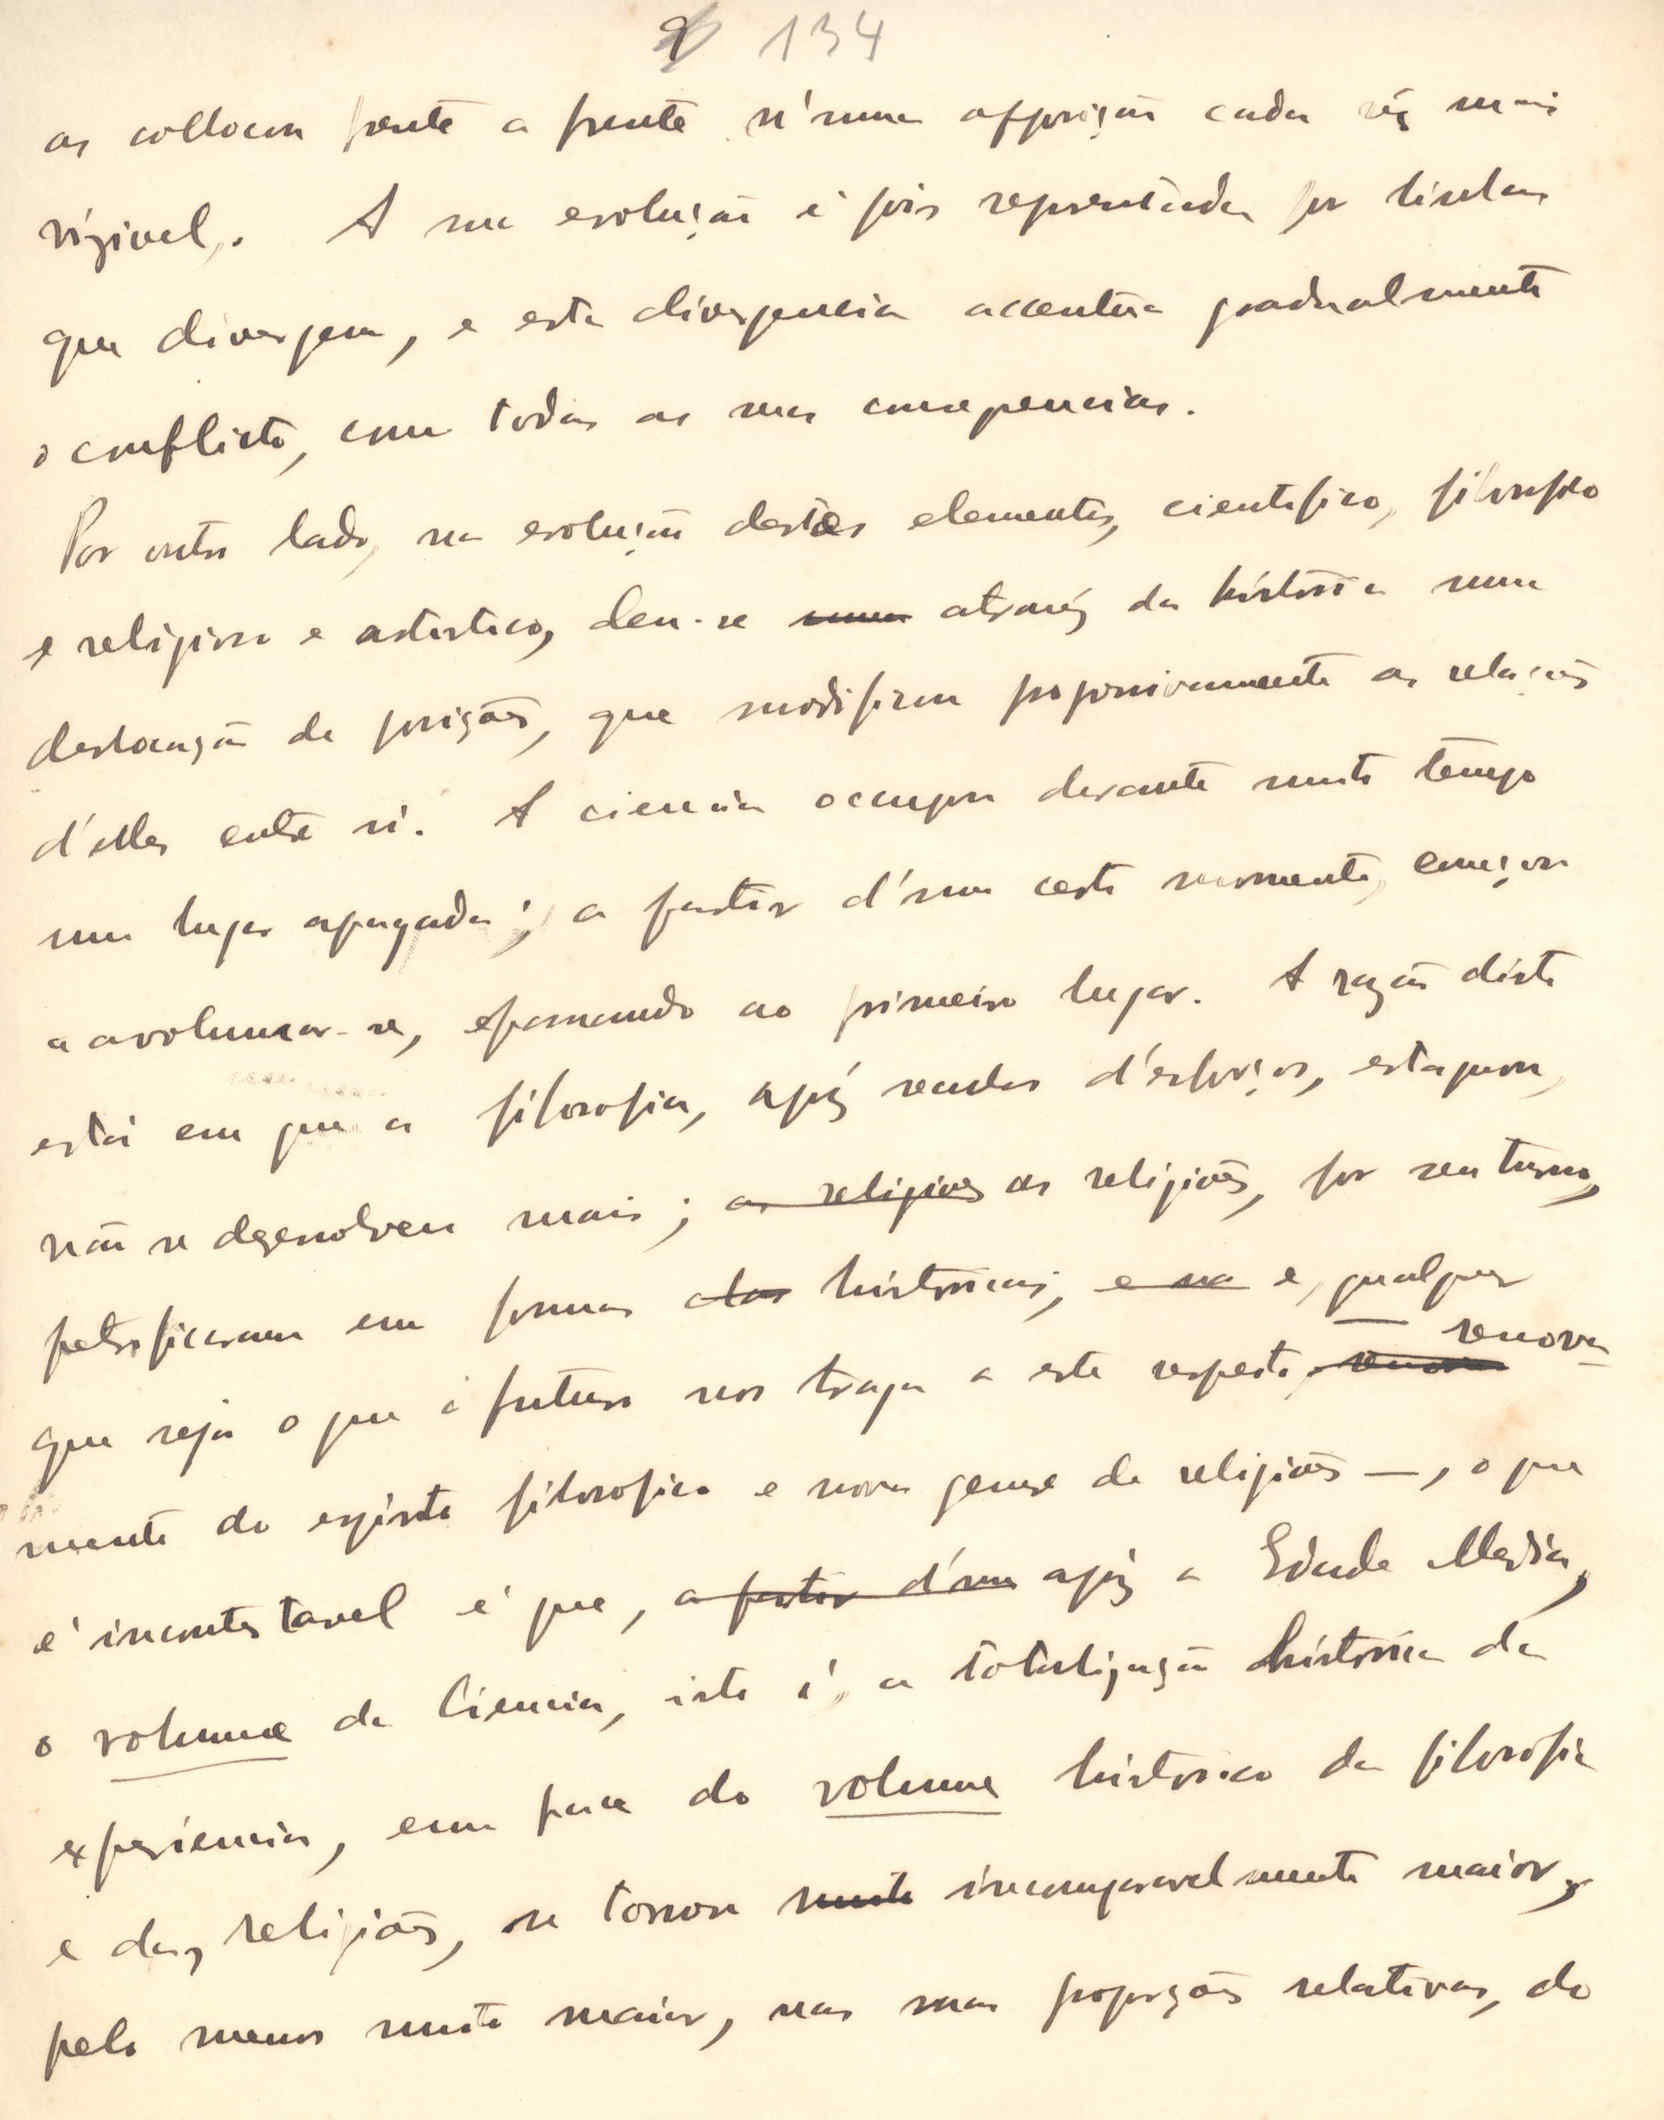 134
as collocou frente a frente n'uma opposição cada vez mais
vizivel. A sua evolução é pois representada por linhas
que divergem, e esta divergencia accentúa gradualmente
o conflicto, com todas as suas consequencias.
Por outro lado, na evolução destes elementos, cientifico, filosofico
e religioso e artistico, deu-se uma através da história uma
deslocação de posições, que modificou progressivamente as relações
d'elles entre si. A ciencia occupou durante muito tempo
um lugar apagado; a partir d'um certo momento, começou
a avolumar-se, passando ao primeiro lugar. A razão disto
está em que a filosofia, após seculos d'esforços, estagnou,
não se dezenvolveu mais; as religiões as religiões, por seu turno,
petrificaram em formas das históricas, e na e, qualquer
que seja o que o futuro nos traga a este respeito, renova renova-
mento do espirito filosofico e nova genese de religiões —, o que
é incontestavel é que, a partir d'um após a Edade Media,
o volume da Ciencia, isto é, a totalização história da
experiencia, em face do volume historico da filosofia
e das religiões, se tornou muito incomparavelmente maior,
pelo menos muito maior, nas suas proporções relativas, do